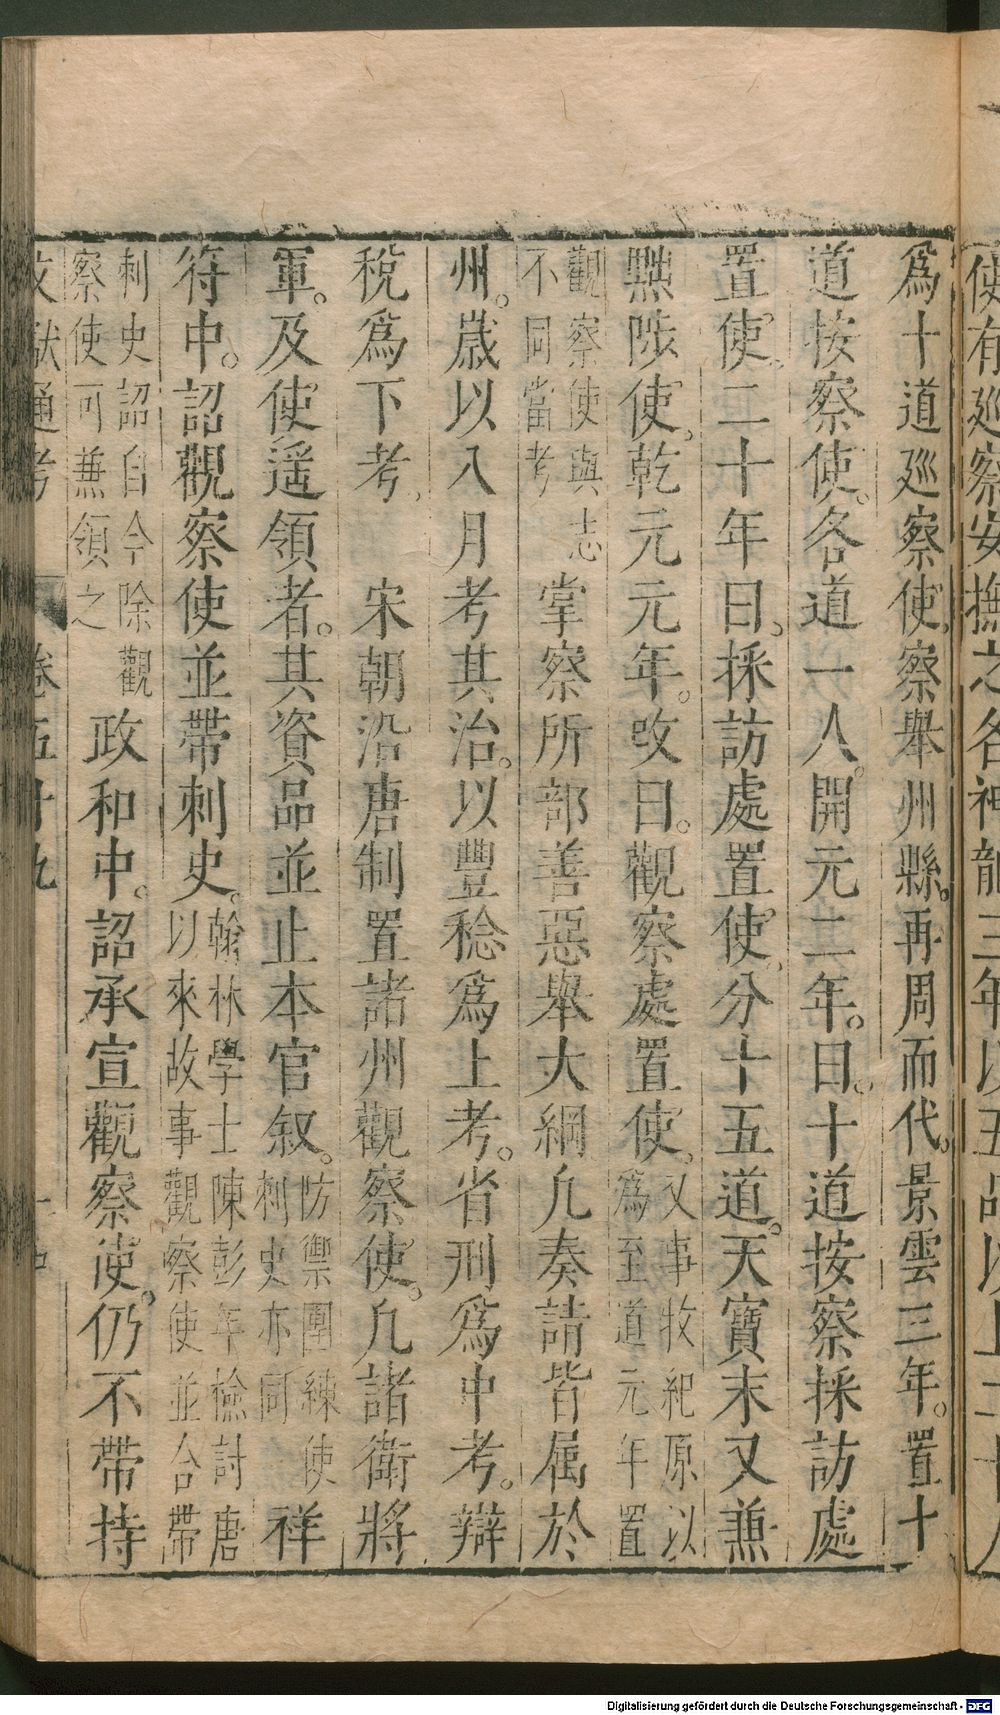 使有巡察安撫之名神龍三年以五品以上二十人
爲十道巡察使察舉州縣再周而代景雲三年置十
道按察使各道一人開元二年曰十道按察採訪處
置使二十年曰採訪處置使分十五道天寶末又兼
黜陟使乾元元年改曰觀察處置使又事牧紀原以
爲至道元年置
觀察使與志
不同當考
掌察所部善惡舉大綱凡奏請皆属於
州歲以八月考其治以豐稔爲上考省刑爲中考辯
稅爲下考 宋朝沿唐制置諸州觀察使凡諸衛將
軍及使遥領者其資品並止本官叙防禦團練使
刺史亦同
祥
符中詔觀察使並帶刺史翰林學士陳彭年檢討唐
以來故事觀察使並合帶
刺史詔自今除觀
察使可兼領之
政和中詔承宣觀察使仍不帶持
文獻通考 卷五十九
Digitalisierung gefördert durch die Deutsche Forschungsgemeinschaft - DFG